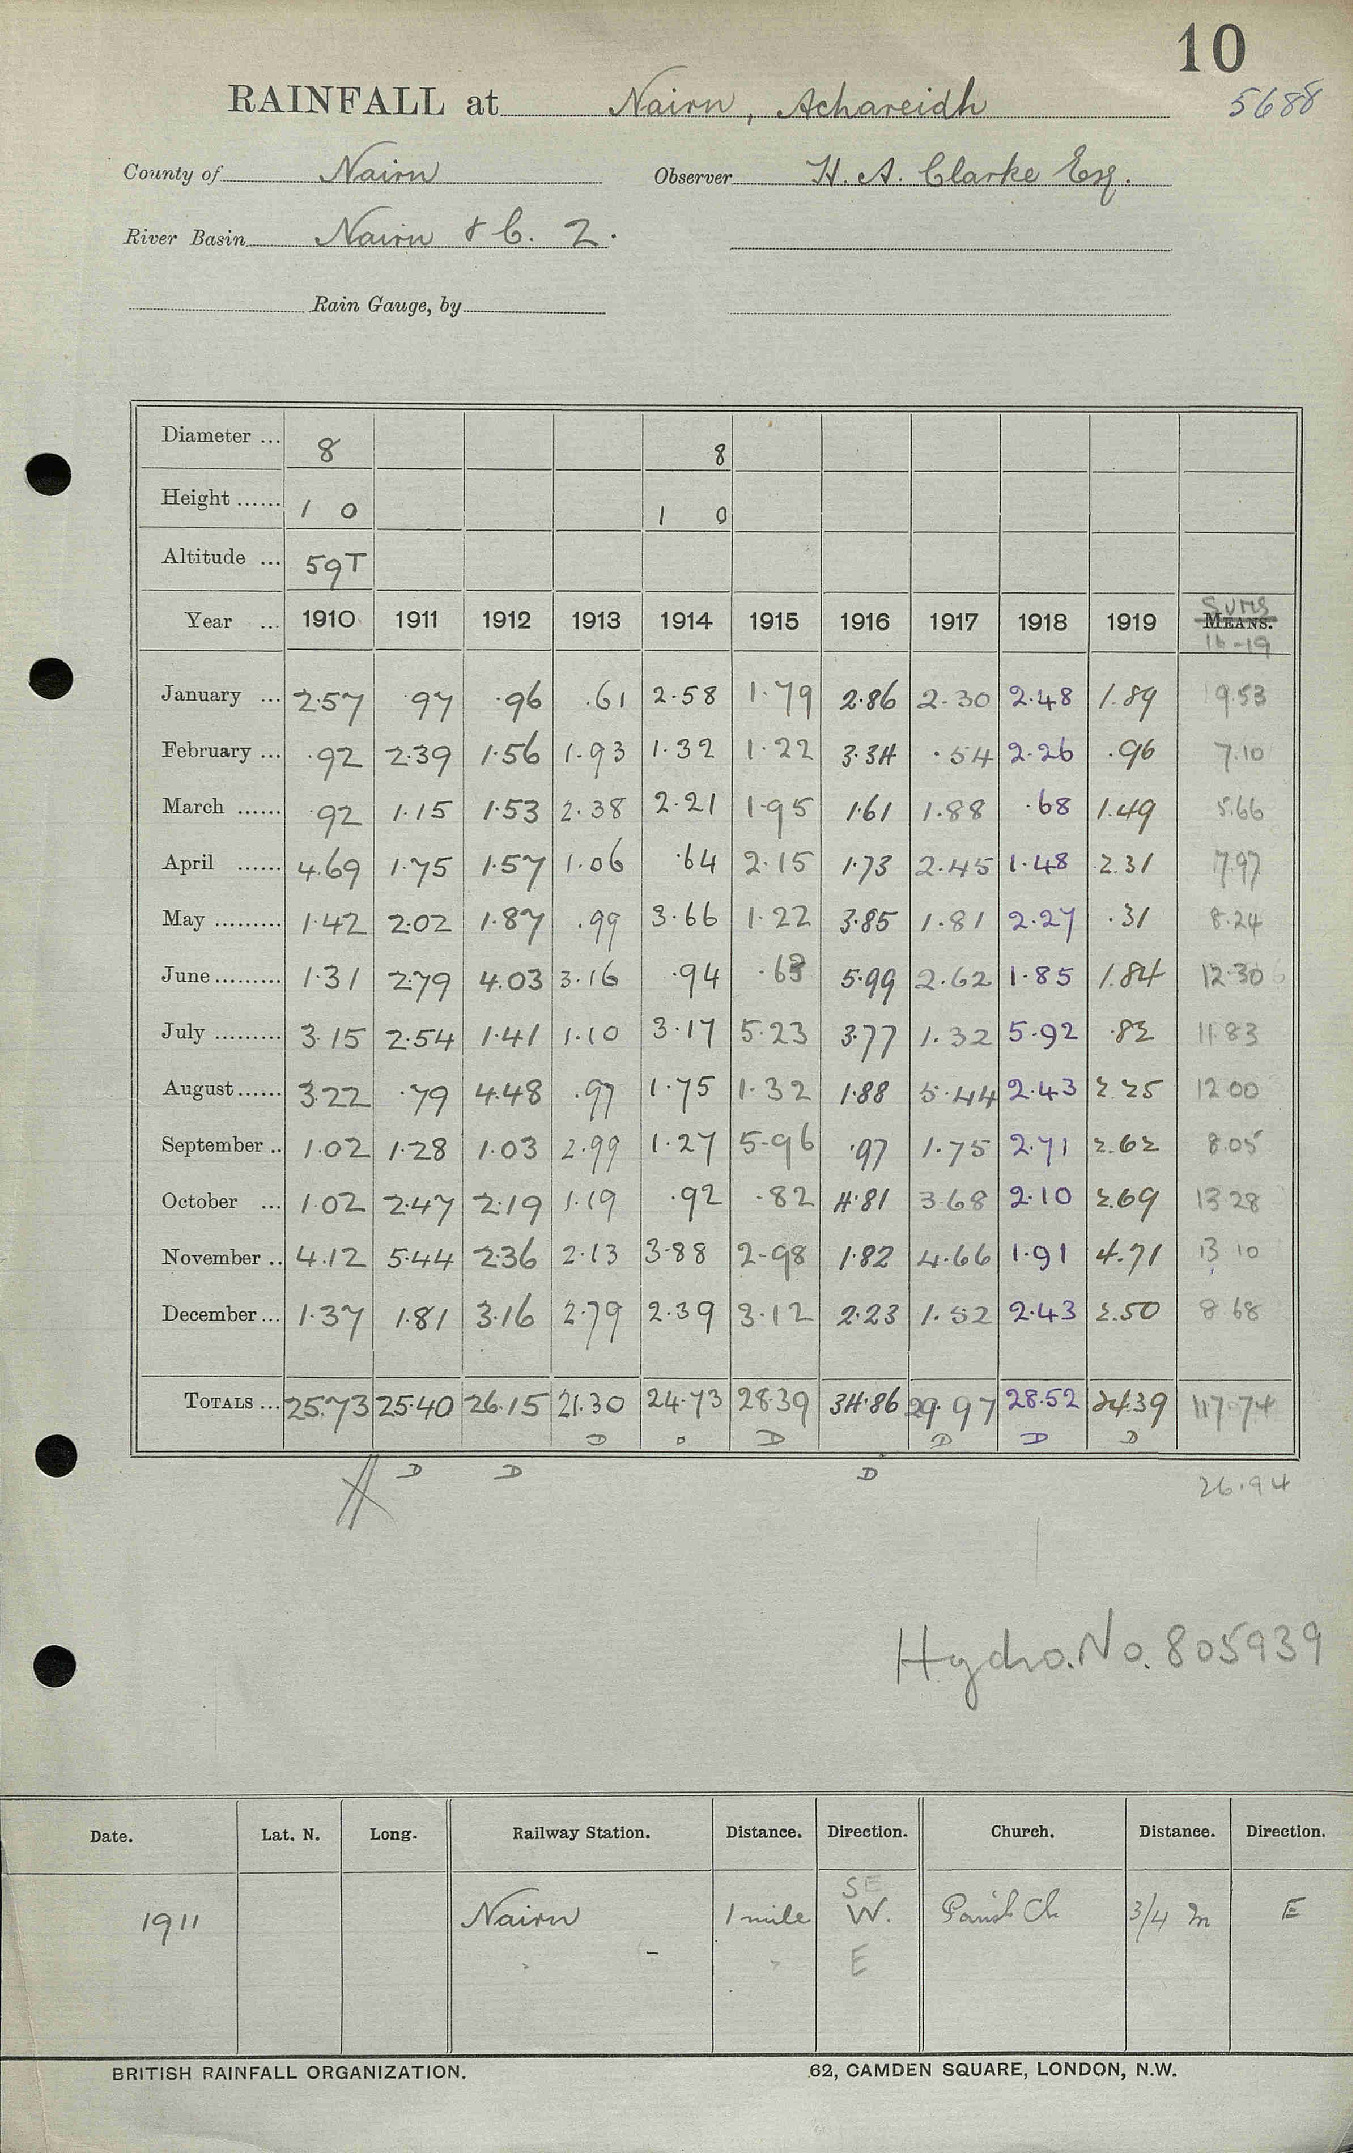 10
RAINFALL at Nairn, Achareidh 5688
County of Nairn Observer H. A. Clarke Esq.
River Basin Nairn & C. 2.
Rain Gauge, by
Diameter ... 8 8
Height ...... 1 0 1 0
Altitude ... 59T
Year ... 1910 1911 1912 1913 1914 1915 1916 1917 1918 1919 SUMS MEANS. 16-19
January ... 2.57 .97 .96 .61 2.58 1.79 2.86 2.30 2.48 1.89 9.53
February ... .92 2.39 1.56 1.93 1.32 1.22 3.34 .54 2.26 .96 7.10
March ...... .92 1.15 1.53 2.38 2.21 1.95 1.61 1.88 .68 1.49 5.66
April ...... 4.69 1.75 1.57 1.06 .64 2.15 1.73 2.45 1.48 2.31 7.97
May ......... 1.42 2.02 1.87 .99 3.66 1.22 3.85 1.81 2.27 .31 8.24
June ......... 1.31 2.79 4.03 3.16 .94 .63 5.99 2.62 1.85 1.84 12.30
July ......... 3.15 2.54 1.41 1.10 3.17 5.23 3.77 1.32 5.92 .82 11.83
August ...... 3.22 .79 4.48 .97 1.75 1.32 1.88 5.44 2.43 2.25 12 00
September .. 1.02 1.28 1.03 2.99 1.27 5.96 .97 1.75 2.71 2.62 8.05
October ... 1.02 2.47 2.19 1.19 .92 .82 4.81 3.68 2.10 2.69 13 28
November .. 4.12 5.44 2.36 2.13 3.88 2.98 1.82 4.66 1.91 4.71 13 10
December ... 1.37 1.81 3.16 2.79 2.39 3.12 2.23 1.52 2.43 2.50 8 68
TOTALS ... 25.73 25.40 26.15 21.30 24.73 28.39 34.86 29.97 28.52 24.39 117.74
D D D D D D
D D D 26.94
Hydro. No. 805939
Date. Lat. N. Long. Railway Station. Distance. Direction. Church. Distance. Direction.
SE
1911 Nairn 1 mile W. Parish Ch 3/4 m E
E
BRITISH RAINFALL ORGANIZATION. 62, CAMDEN SQUARE, LONDON, N.W.